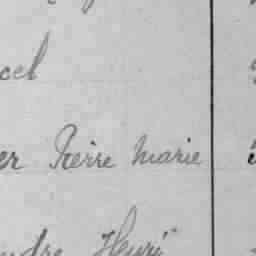 cel
er Pierre Marie
andre Henri